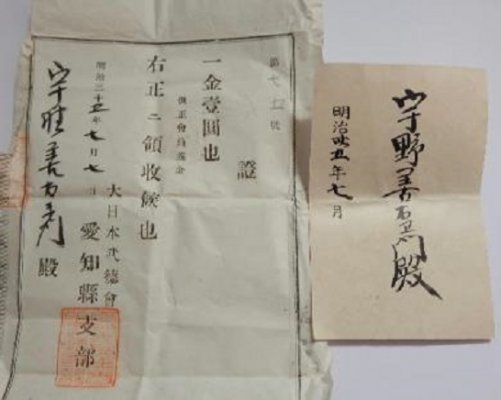 第 號
證
一金壹圓也
但正會員義金
右正ニ領收候也
明治三十五年七月七日
大日本武德會
愛知縣支部
宇野善右衛門殿
宇野善右衛門殿
明治卅五年七月